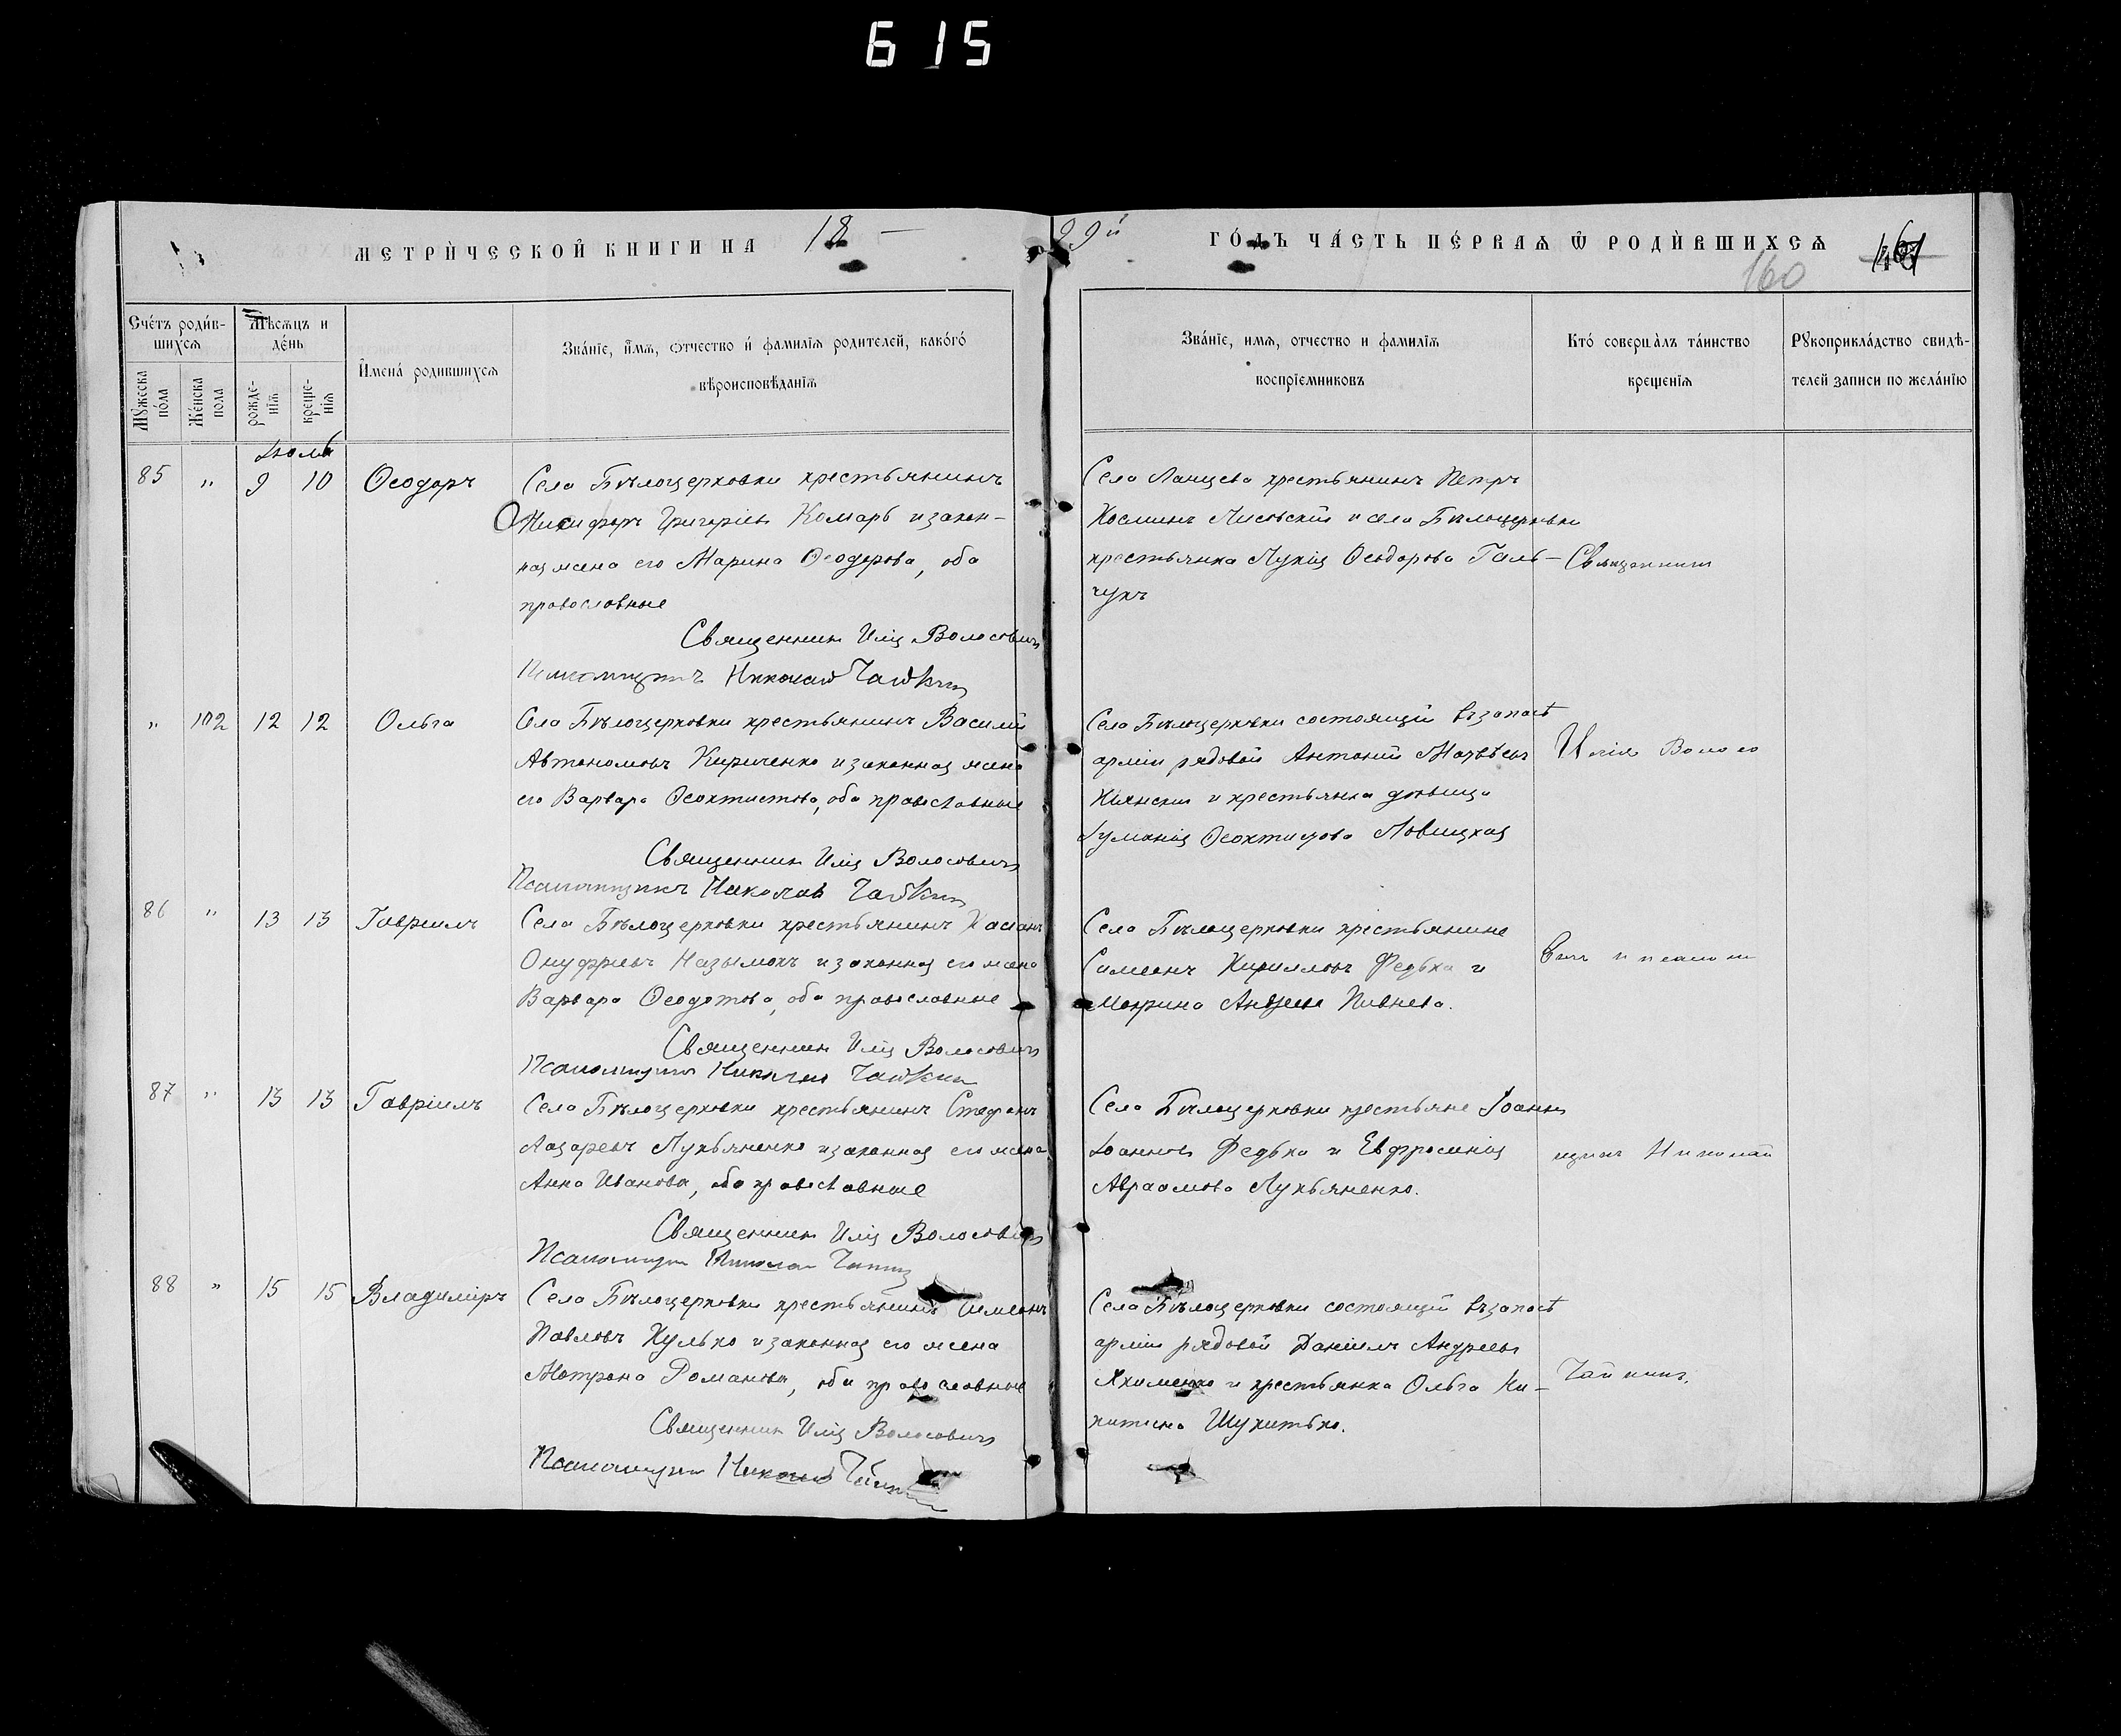 615
МЕТРИ́ЧЕСКОЙ КНИГИ НА 18 —
99й ГО́ДЪ ЧА́СТЬ ПЕ́РВАѦ Ѽ РОДИ́ВШИХСѦ
160
161
Сче́тъ роди́в-
шихсѧ
Мѣ́сѧцъ и
де́нь
Имена́ родившихсѧ
Зва́нїе, и́мѧ, ѻтчество и́ фамилїѧ родителей, како́го́
вѣроисповѣ́данїѧ
Мꙋ́жеска
по́ла
Же́нска
пола
рожде-
нїѧ
креще-
нїѧ
Зва́нїе, имѧ, отчество и фамилїѧ
воспрїемниковъ
Кто́ соверша́лъ та́инство
крещенїѧ
Рꙋкоприкла́дство свидѣ-
телей записи по жела́нїю
Июль
85 " 9 10 Ѳеодоръ
Села Бѣлоцерковки крестьянинъ
Никифоръ Григоріевъ Комаръ и закон-
ная жена его Марина Ѳеодорова, оба
православные
Священникъ Илія Волосовичъ
Псаломщикъ Николай Чайкинъ
Села Крестьянинъ Петръ
Косминъ Лисовскій и села Бѣлоцерковки
крестьянка Лукія Ѳеодорова Галь-
чукъ
Священникъ
" 102 12 12 Ольга
Села Бѣлоцерковки крестьянинъ Василій
Автономовъ Кириченко и законная жена
его Варвара Ѳеоктистова, оба православные
Священникъ Илія Волосовичъ
Псаломщикъ Николай Чайкинъ
Села Бѣлоцерковки состоящій въ запасѣ
арміи рядовой Антоній Матвѣевъ
и крестьянка дѣвица
Ѳеоктистова Ловицкая
Илія Волосо
86 " 13 13 Гавріилъ
Села Бѣлоцерковки крестьянинъ Касіанъ
Онуфріевъ Назымокъ и законная его жена
Варвара Ѳеодотова, оба православные
Священникъ Илія Волосовичъ
Псаломщикъ Николай Чайкинъ
Села Бѣлоцерковки крестьяне
Симеонъ Кирилловъ Федька и
Макрина Андреева Пивнева.
вичъ и псалом
87 " 13 13 Гавріилъ
Села Бѣлоцерковки крестьянинъ Стефанъ
Лазаревъ Лукьяненко и законная его жена
Анна Иванова, оба православные
Священникъ Илія Волосовичъ
Псаломщикъ Николай Чайкинъ
Села Бѣлоцерковки крестьяне Іоаннъ
Іоанновъ Федька и Евфросинія
Авраамова Лукьяненко.
щикъ Николай
88 " 15 15 Владиміръ
Села Бѣлоцерковки крестьянинъ Симеонъ
Павловъ Кулько и законная его жена
Матрона Романова, оба православные
Священникъ Илія Волосовичъ
Псаломщикъ Николай Чайкинъ
Села Бѣлоцерковки состоящій въ запасѣ
арміи рядовой Даніилъ Андреевъ
Якименко и крестьянка Ольга Ни-
китина Шукитько.
Чайкинъ.